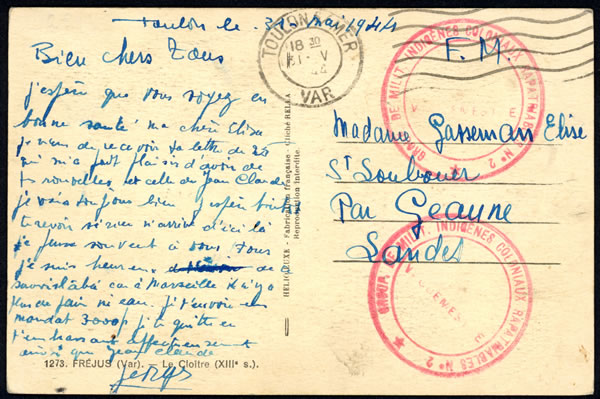 Toulon le 31 Mai 1944
Bien chers Tous
j'espère que vous soyez en
bonne santé ma chère Elise
je viens de recevoir ta lettre du 25
qui m'a fait plaisir d'avoir de
tes nouvelles et celle de Jean Claude
je vais toujours bien j'espère bientôt
te revoir si rien n'arrive d'ici là
je pense souvent à vous tous
je suis heureux de
savoir là bas car à Marseille il n'y a
plus de pain ni eau. je t'envoie un
mandat 3000f je te quitte en
t'embrassant affectueusement
ainsi que Jean Claude
1273. FRÉJUS (Var). — Le Cloître (XIIIᵉ s.).
HELIO LUXE - Fabrication française. Cliché RELLA
Reproduction interdite.
TOULON
18 30
31 - V
44
VAR
F.M.
Madame Gasseman Elise
St Loubouer
Par Geaune
Landes
GROUP. DE MILIT. INDIGÈNES COLONIAUX RAPATRIABLES N° 2
GROUP. DE MILIT. INDIGÈNES COLONIAUX RAPATRIABLES N° 2